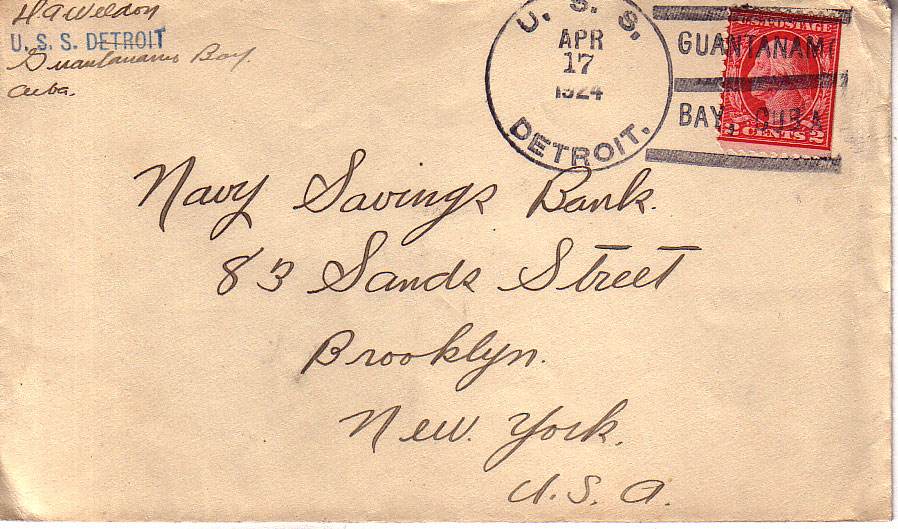 H A Weldon
U. S. S. DETROIT
Guantanamo Bay.
Cuba.
U. S. S.
APR
17
1924
DETROIT.
GUANTANAMO
BAY, CUBA
U.S. POSTAGE
CENTS 2
Navy Savings Bank.
83 Sands Street
Brooklyn.
New. York.
U. S. A.